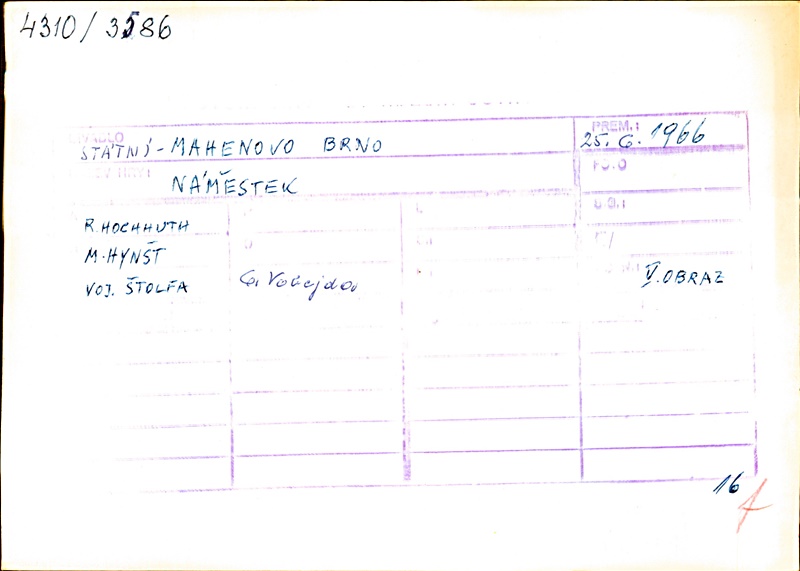 4310/3586
DIVADLO
PREM.:
STÁTNÍ - MAHENOVO BRNO
25. 6. 1966
NÁMĚSTEK
R. HOCHHUTH
M. HYNŠT
VOJ. ŠTOLFA
V. OBRAZ
16